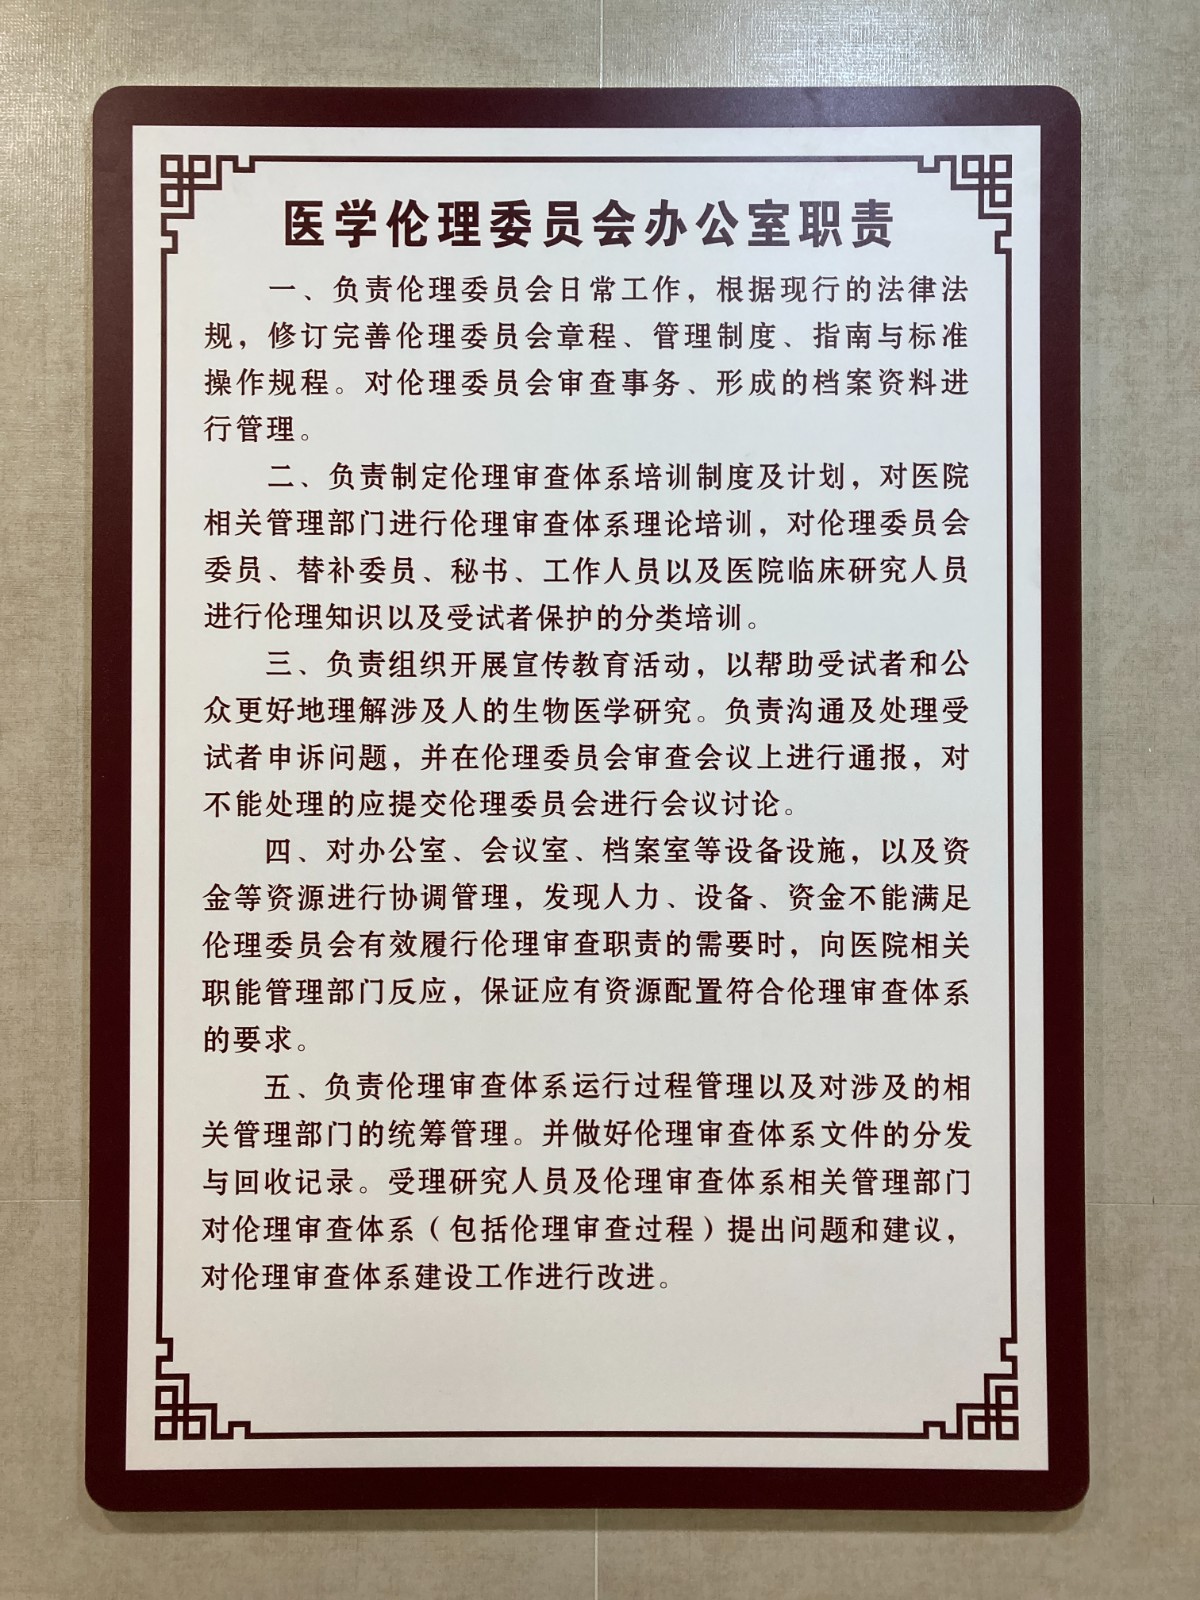 医学伦理委员会办公室职责
一、负责伦理委员会日常工作，根据现行的法律法
规，修订完善伦理委员会章程、管理制度、指南与标准
操作规程。对伦理委员会审查事务、形成的档案资料进
行管理。
二、负责制定伦理审查体系培训制度及计划，对医院
相关管理部门进行伦理审查体系理论培训，对伦理委员会
委员、替补委员、秘书、工作人员以及医院临床研究人员
进行伦理知识以及受试者保护的分类培训。
三、负责组织开展宣传教育活动，以帮助受试者和公
众更好地理解涉及人的生物医学研究。负责沟通及处理受
试者申诉问题，并在伦理委员会审查会议上进行通报，对
不能处理的应提交伦理委员会进行会议讨论。
四、对办公室、会议室、档案室等设备设施，以及资
金等资源进行协调管理，发现人力、设备、资金不能满足
伦理委员会有效履行伦理审查职责的需要时，向医院相关
职能管理部门反应，保证应有资源配置符合伦理审查体系
的要求。
五、负责伦理审查体系运行过程管理以及对涉及的相
关管理部门的统筹管理。并做好伦理审查体系文件的分发
与回收记录。受理研究人员及伦理审查体系相关管理部门
对伦理审查体系（包括伦理审查过程）提出问题和建议，
对伦理审查体系建设工作进行改进。